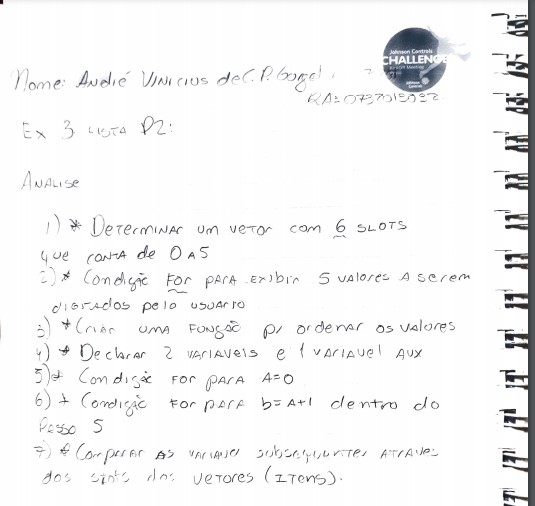 Johnson Controls
CHALLENGE
Nome: André Vinicius de C. P. Gorgel
RA: 0737013032
Ex 3 LISTA P2:
ANALISE
1) * DETERMINAR UM VETOR COM 6 SLOTS
que conta de 0 A 5
2) * Condição FOR PARA EXIBIR 5 VALORES A SEREM
digitados pelo usuário
3) * Criar UMA FUNÇÃO p/ ordenar os VALORES
4) * Declarar 2 VARIAVEIS e 1 VARIAVEL AUX
5) * Condição FOR PARA A=0
6) * Condição FOR PARA b=A+1 dentro do
Passo 5
7) * Comparar AS subsequentes ATRAVES
dos slots dos VETORES (ITENS).